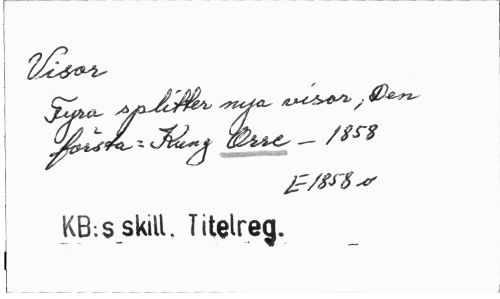 Visor
Fyra splitter nya visor, Den
första = Kung Orre - 1858
E 1858 o
KB:s skill. Titelreg.